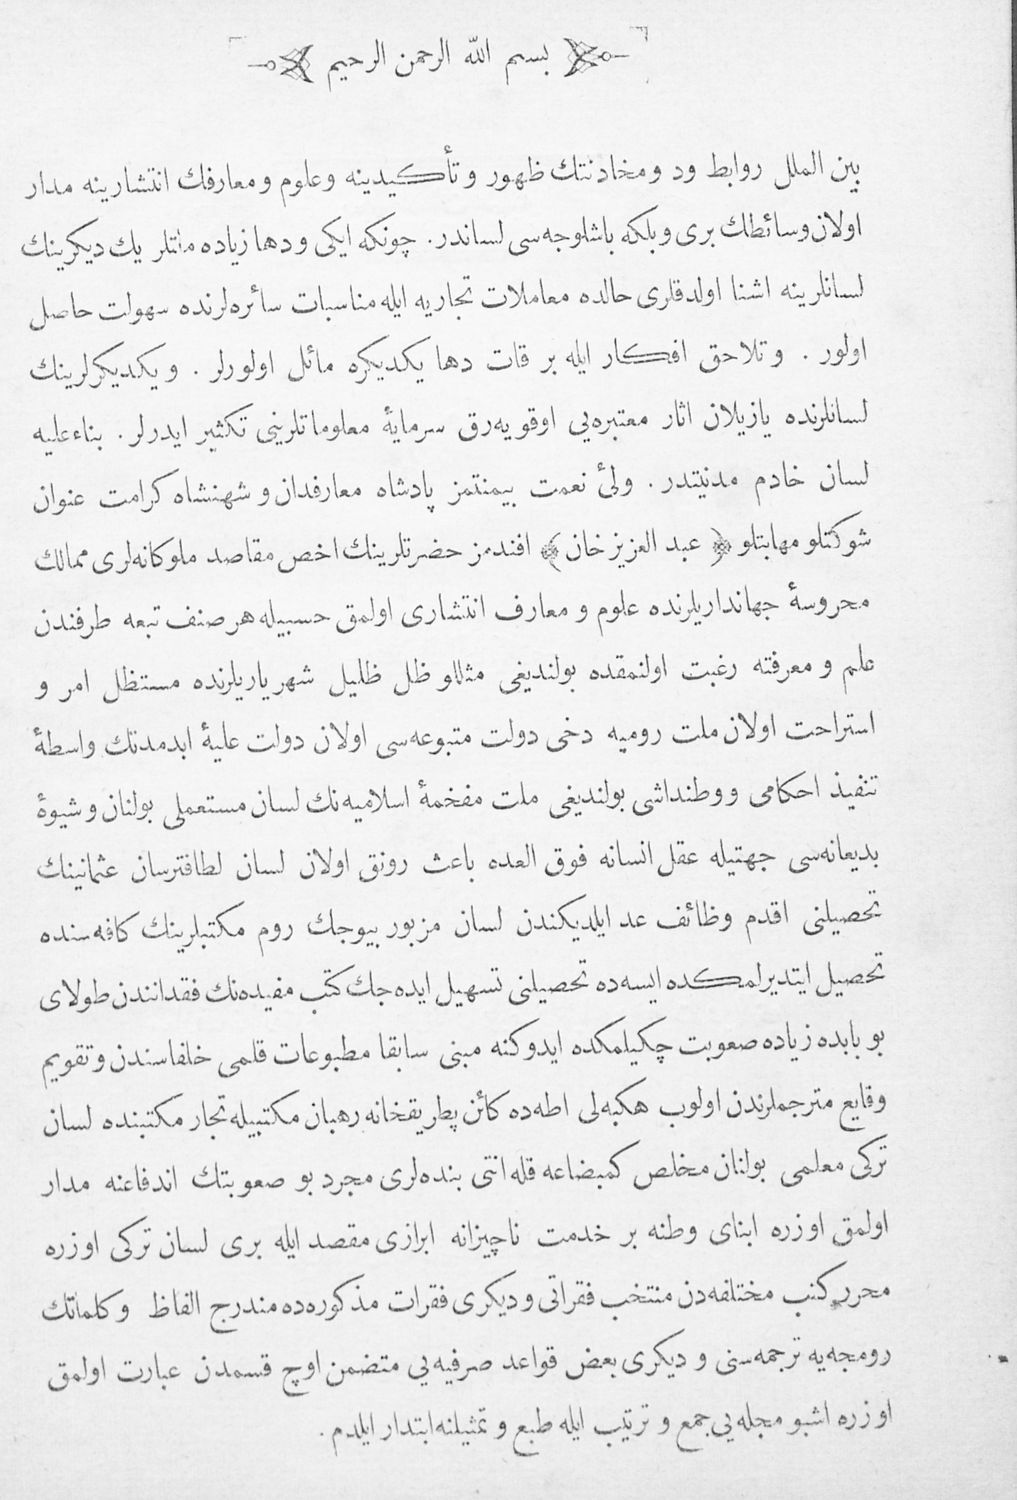 بسم الله الرحمن الرحيم
بين الملل روابط ود ومخادنتك ظهور و تأكيدينه وعلوم ومعارفك انتشارينه مدار
اولان وسائطك برى و بلكه باشلوجه‌سى لساندر. چونكه ايكى ودها زياده ملتلر يك ديكرينك
لسانلرينه اشنا اولدقلرى حالده معاملات تجاريه ايله مناسبات سائره‌لرنده سهولت حاصل
اولور . و تلاحق افكار ايله بر قات دها يكديكره مائل اولورلر . و يكديكرلرينك
لسانلرنده يازيلان اثار معتبره‌يى اوقويه‌رق سرمايهٔ معلوماتلرينى تكثير ايدرلر . بناءعليه
لسان خادم مدنيتدر . ولئ نعمت بيمنتمز پادشاه معارفدان و شهنشاه كرامت عنوان
شوكتلو مهابتلو ﴿ عبد العزيز خان ﴾ افندمز حضرتلرينك اخص مقاصد ملوكانه‌لرى ممالك
محروسهٔ جهانداريلرنده علوم و معارف انتشارى اولمق حسبيله هر صنف تبعه طرفندن
علم و معرفته رغبت اولنمقده بولنديغى مثللو ظل ظليل شهرياريلرنده مستظل امر و
استراحت اولان ملت روميه دخى دولت متبوعه‌سى اولان دولت عليهٔ ابدمدتك واسطهٔ
تنفيذ احكامى ووطنداشى بولنديغى ملت مفخمهٔ اسلاميه‌نك لسان مستعملى بولنان و شيوهٔ
بديعانه‌سى جهتيله عقل انسانه فوق العده باعث رونق اولان لسان لطافترسان عثمانينك
تحصيلنى اقدم وظائف عد ايلديكندن لسان مزبور بيوجك روم مكتبلرينك كافه‌سنده
تحصيل ايتديرلمكده ايسه‌ده تحصيلنى تسهيل ايده‌جك كتب مفيده‌نك فقدانندن طولاى
بو بابده زياده صعوبت چكيلمكده ايدوكنه مبنى سابقا مطبوعات قلمى خلفاسندن و تقويم
وقايع مترجملرندن اولوب هكبه‌لى اطه‌ده كائن پطريقخانه رهبان مكتبيله تجار مكتبنده لسان
تركى معلمى بولنان مخلص كمبضاعه قله‌انتى بنده‌لرى مجرد بو صعوبتك اندفاعنه مدار
اولمق اوزره ابناى وطنه بر خدمت ناچيزانه ابرازى مقصد ايله برى لسان تركى اوزره
محرر كتب مختلفه‌دن منتخب فقراتى و ديكرى فقرات مذكوره‌ده مندرج الفاظ وكلماتك
رومجه‌يه ترجمه‌سنى و ديكرى بعض قواعد صرفيه‌يى متضمن اوچ قسمدن عبارت اولمق
اوزره اشبو مجله‌يى جمع و ترتيب ايله طبع و تمثيلنه ابتدار ايلدم .